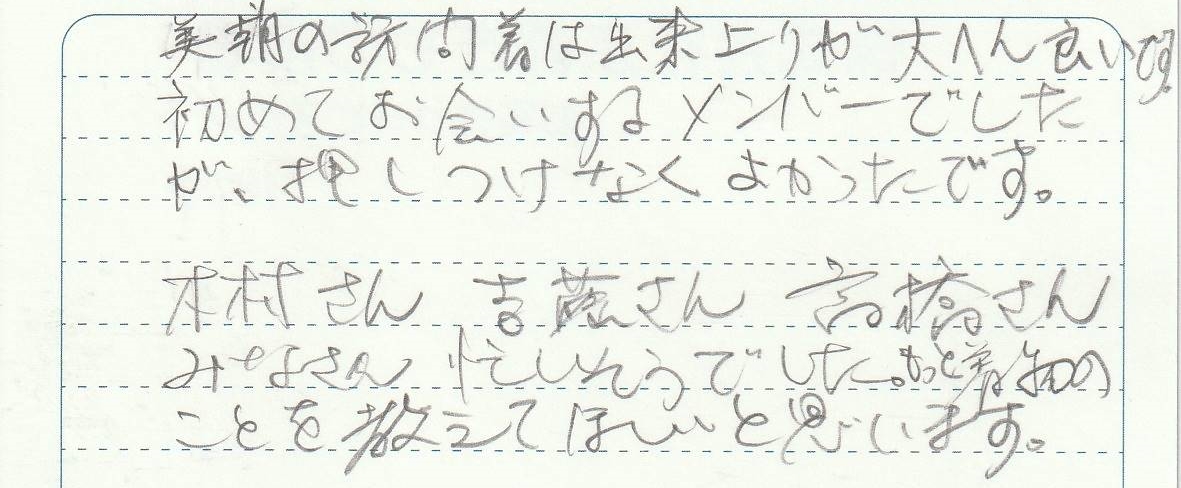 美朝の訪問着は出来上りが大へん良いです
初めてお会いするメンバーでした
が、押しつけなくよかったです。
木村さん 吉藤さん 高橋さん
みなさん忙しそうでした。もっと着物の
ことを教えてほしいと思います。